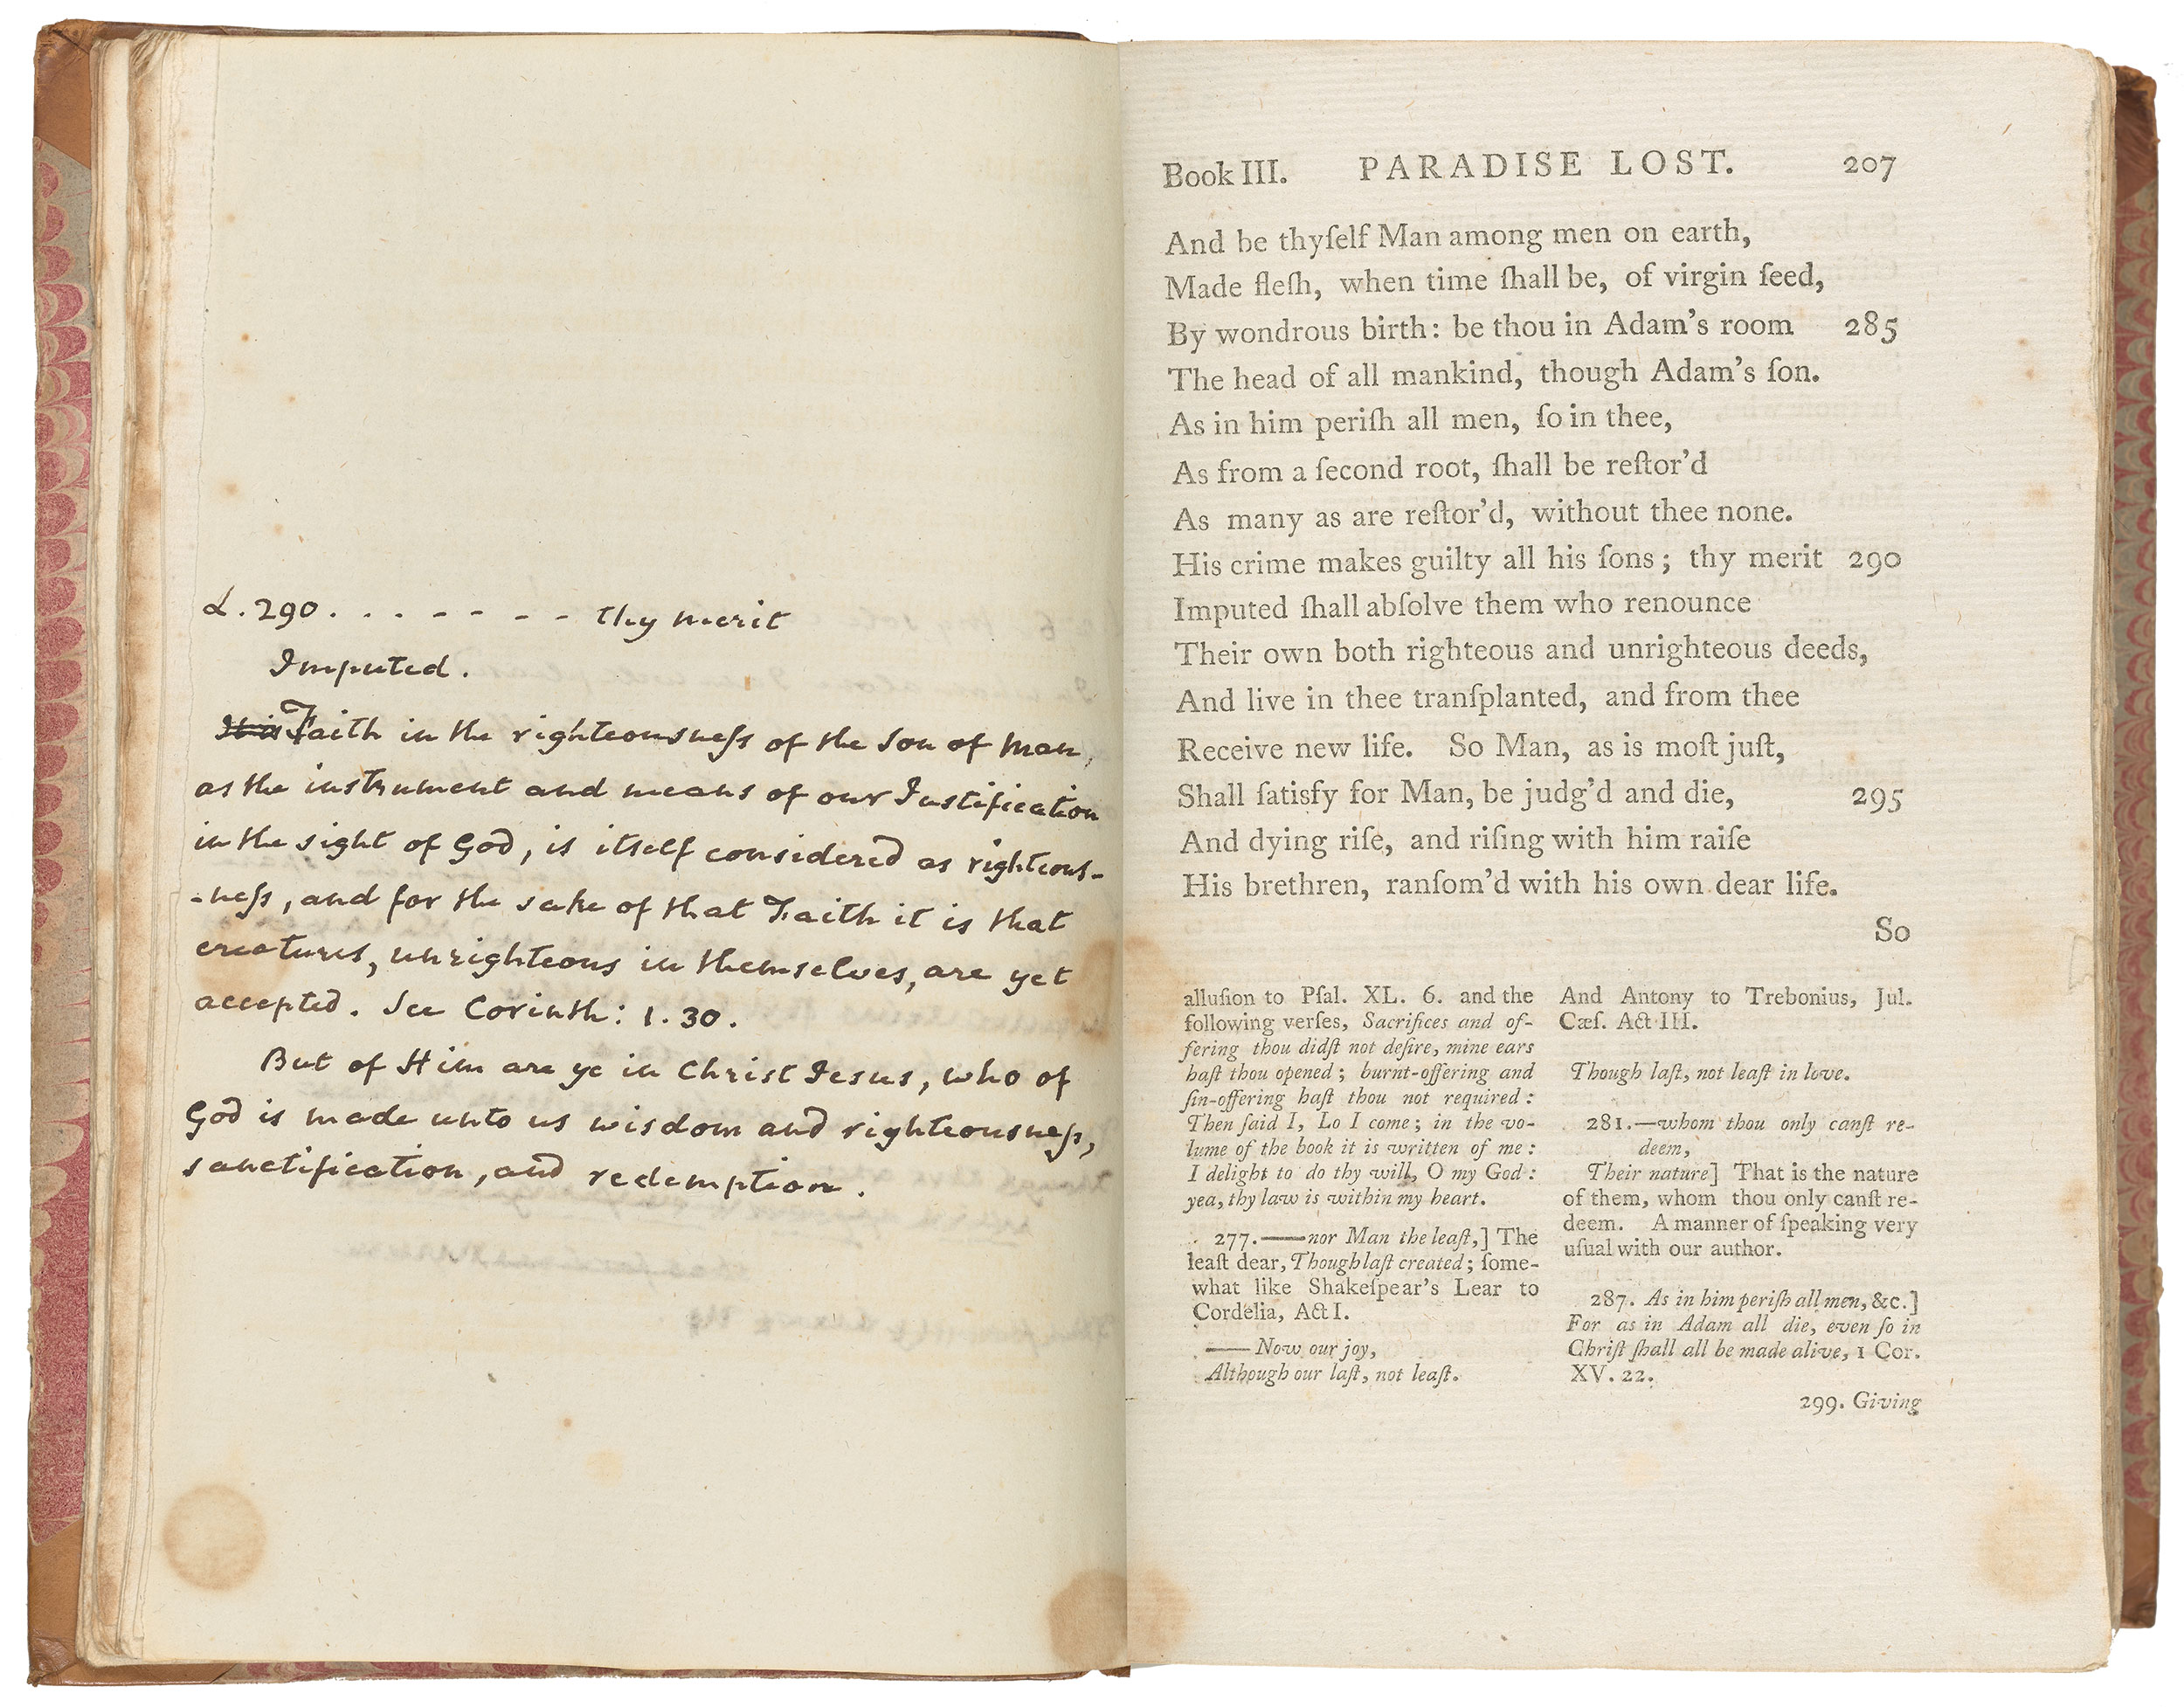 L. 290. . . - - - - thy merit
Imputed.
It is Faith in the righteousneſs of the Son of Man,
as the instrument and means of our Justification
in the sight of God, is itself considered as righteous-
-neſs, and for the sake of that Faith it is that
creatures, unrighteous in themselves, are yet
accepted. See Corinth: 1. 30.
But of Him are ye in Christ Jesus, who of
God is made unto us wisdom and righteousneſs,
sanctification, and redemption.
Book III. PARADISE LOST. 207
And be thyſelf Man among men on earth,
Made fleſh, when time ſhall be, of virgin ſeed,
By wondrous birth: be thou in Adam's room 285
The head of all mankind, though Adam's ſon.
As in him periſh all men, ſo in thee,
As from a ſecond root, ſhall be reſtor'd
As many as are reſtor'd, without thee none.
His crime makes guilty all his ſons; thy merit 290
Imputed ſhall abſolve them who renounce
Their own both righteous and unrighteous deeds,
And live in thee tranſplanted, and from thee
Receive new life. So Man, as is moſt juſt,
Shall ſatisfy for Man, be judg'd and die, 295
And dying riſe, and riſing with him raiſe
His brethren, ranſom'd with his own dear life.
So
alluſion to Pſal. XL. 6. and the
following verſes, Sacrifices and of-
fering thou didſt not deſire, mine ears
haſt thou opened; burnt-offering and
ſin-offering haſt thou not required:
Then ſaid I, Lo I come; in the vo-
lume of the book it is written of me:
I delight to do thy will, O my God:
yea, thy law is within my heart.
277.—nor Man the leaſt,] The
leaſt dear, Though laſt created; ſome-
what like Shakeſpear's Lear to
Cordelia, Act I.
— Now our joy,
Although our laſt, not leaſt.
And Antony to Trebonius, Jul.
Cæſ. Act III.
Though laſt, not leaſt in love.
281.—whom thou only canſt re-
deem,
Their nature] That is the nature
of them, whom thou only canſt re-
deem. A manner of ſpeaking very
uſual with our author.
287. As in him periſh all men, &c.]
For as in Adam all die, even ſo in
Chriſt ſhall all be made alive, 1 Cor.
XV. 22.
299. Giving